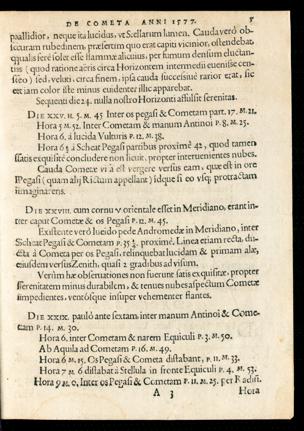 DE COMETA ANNI 1577. 5
pallidior, neque ita lucidus, vt Stellarum lumen. Cauda verò ob-
scuram rubedinem, præsertim quo erat capiti vicinior, ostendebat,
qualis ferè solet esse flammæ alicuius, per fumum densum eluctan-
tis (quod ratione aëris circa Horizontem intermedij euenisse cen-
seo) sed, veluti, circa finem, ipsa cauda successiuè rarior erat, sic
etiam color iste minus euidenter illic apparebat.
Sequenti die 24. nulla nostro Horizonti affulsit serenitas.
DIE XXV. H. 5. M. 45 Inter os pegasi & Cometam part. 17. M. 21.
Hora 5 M. 52. Inter Cometam & manum Antinoi P. 8. M. 25.
Hora 6, à lucida Vulturis P. 12. M. 38.
Hora 6 à Scheat Pegasi partibus proximè 42, quod tamen
satis exquisitè concludere non licuit, propter interuenientes nubes.
Cauda Cometæ vt à est vergere versus eam, quæ est in ore
Pegasi (quam alij Rictum appellant) idque si eo vsque protractam
imaginareris.
DIE XXVIII. cum cornu ♈ orientale esset in Meridiano, erant in-
ter caput Cometæ & os Pegasi P. 12. M. 45.
Existente verò lucido pede Andromedæ in Meridiano, inter
Scheat Pegasi & Cometam P. 35 proximè. Linea etiam recta, du-
cta à Cometa per os Pegasi, relinquebat lucidam & primam alæ,
eiusdem versus Zenith, quasi 2 gradibus ad visum.
Verùm hæ obseruationes non fuerunt satis exquisitæ, propter
serenitatem minus durabilem, & tenues nubes aspectum Cometæ
impedientes, ventosque insuper vehementer flantes.
DIE XXIX. paulò ante sextam, inter manum Antinoi & Come-
tam P. 14. M. 30.
Hora 6, inter Cometam & narem Equiculi P. 3. M. 50.
Ab Aquila ad Cometam P. 16. M. 49.
Hora 6 M. 15. Os Pegasi & Cometa distabant, P. 11. M. 33.
Hora 7 M. 6 distabat à Stellula in fronte Equiculi P. 4. M. 53.
Hora 9 M. 0, Inter os Pegasi & Cometam P. 11. M. 25. per Radium.
A 3 Hora